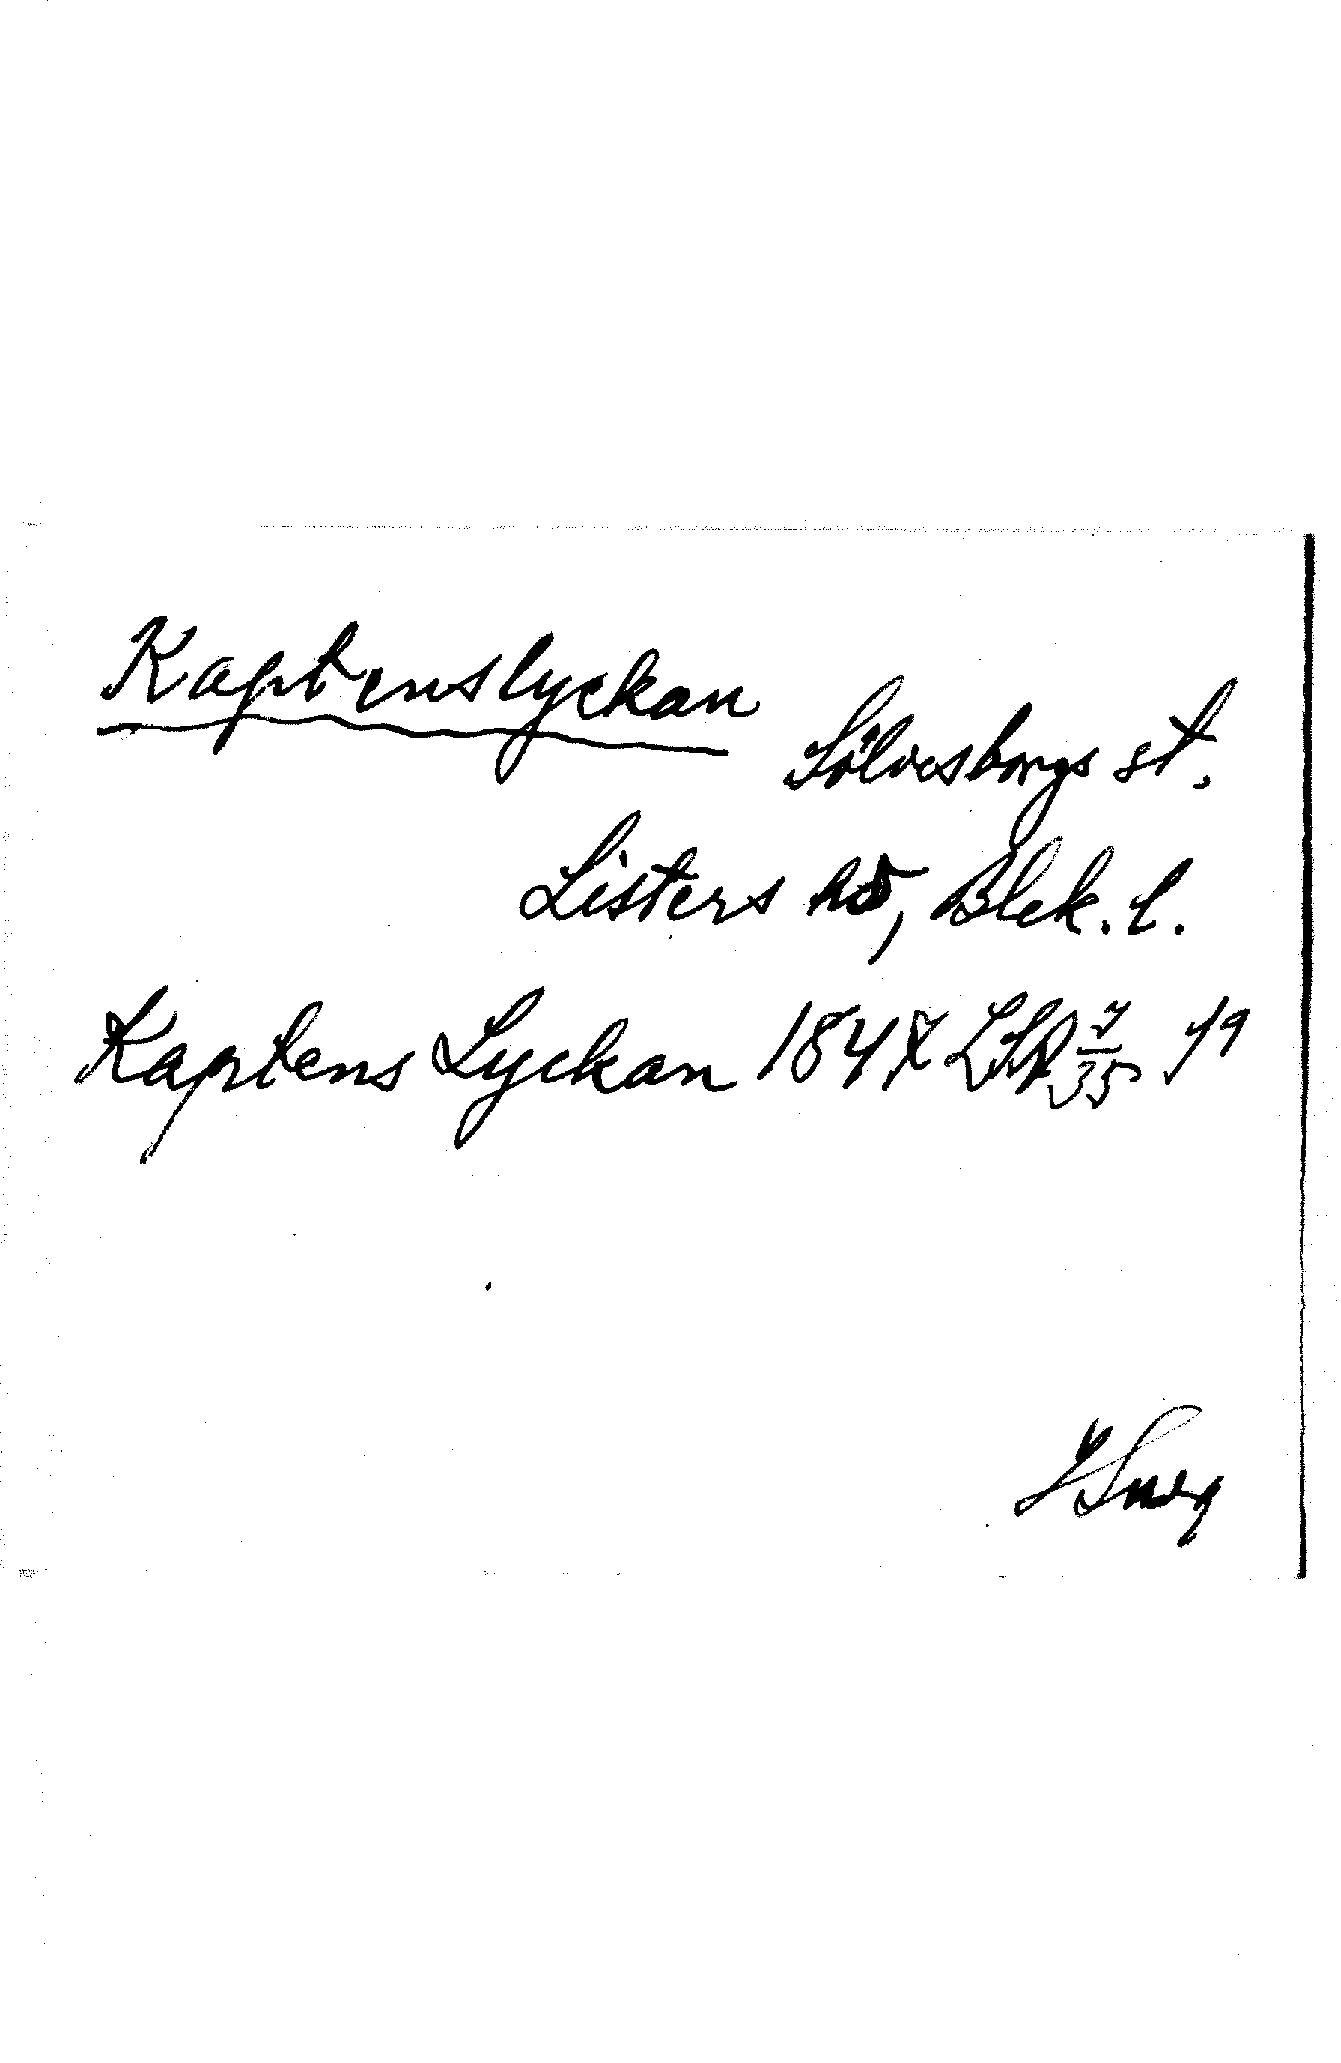 Kaptenslyckan
Sölvesborgs st.
Listers hd, Blek. l.
Kaptens Lyckan 1847 LSA 7/35 f9